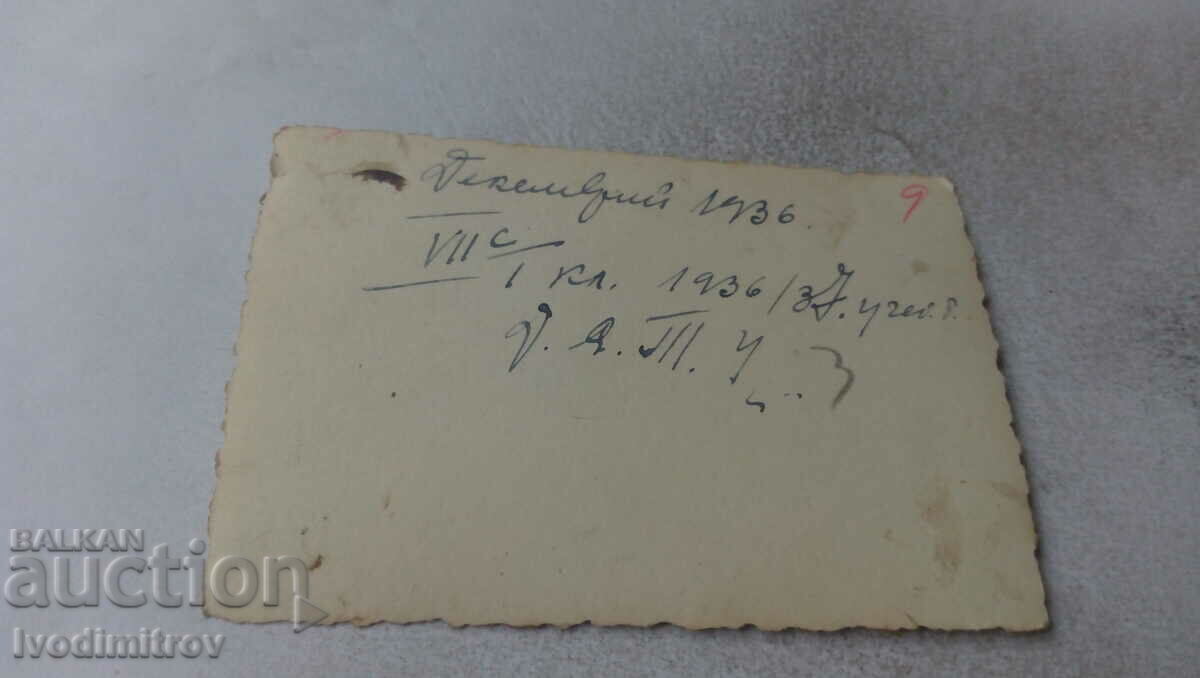 Декемврий 1936. 9
VII с
I кл. 1936/37. учеб. г.
Д. А. Т. У
BALKAN
auction
Ivodimitrov